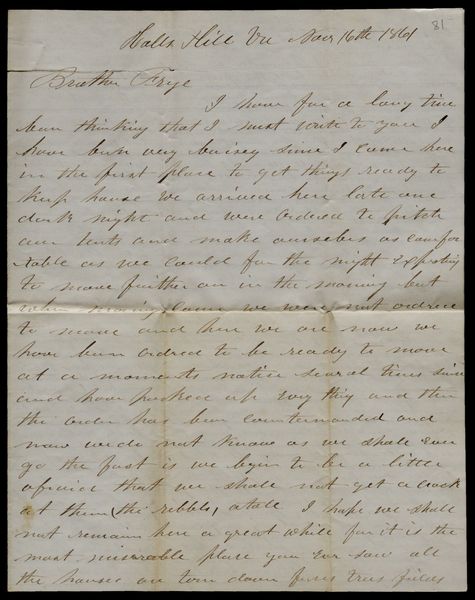 81
Halls Hill Va Nov 16th 1861
Brother Frye
I have for a long time
been thinking that I must write to you I
have been very buisey since I came here
in the first place to get things ready to
keep house we arrived here late one
dark night and were ordered to pitch
our tents and make ourselves as comfor
table as we could for the night expecting
to move further on in the morning but
when morning came we were not ordred
to move and here we are now we
have been ordred to be ready to move
at a moments notice searal times since
and have packed up evry thing and then
the order has been counternanded and
now we do not know as we shall ever
go the fact is we begin to be a little
afraid that we shall not get a crack
at them (the rebbls) atall I hope we shall
not remain here a great while for it is the
most miserable place you ever saw all
the houses are torn down fences trees fields